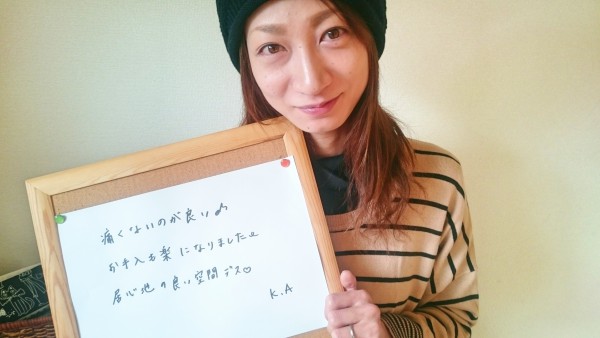 痛くないのが良い♪
お手入も楽になりました
居心地の良い空間デス♡
K.A